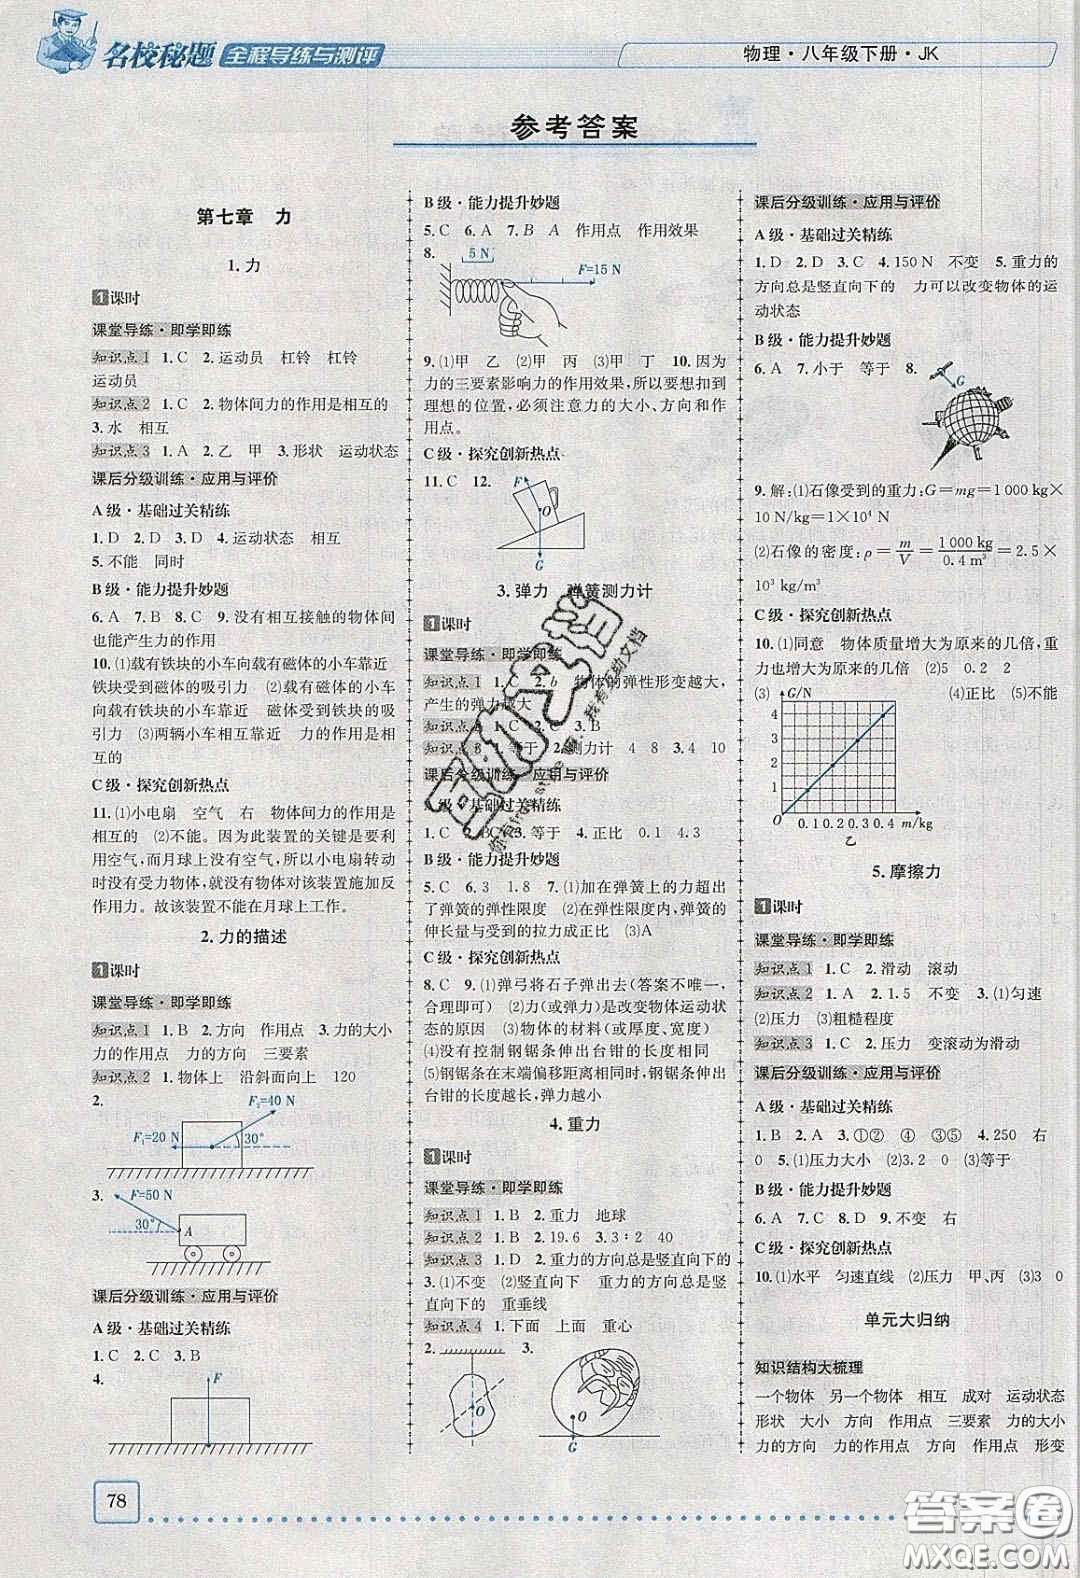 名校秘题 全程导练与测评
物理·八年级下册·JK
参考答案
第七章 力
1.力
1课时
课堂导练·即学即练
知识点1 1.C 2.运动员 杠铃 杠铃
运动员
知识点2 1.C 2.物体间力的作用是相互的
3.水 相互
知识点3 1.A 2.乙 甲 3.形状 运动状态
课后分级训练·应用与评价
A级·基础过关精练
1.D 2.D 3.D 4.运动状态 相互
5.不能 同时
B级·能力提升妙题
6.A 7.B 8.C 9.没有相互接触的物体间
也能产生力的作用
10.(1)载有铁块的小车向载有磁体的小车靠近
铁块受到磁体的吸引力 (2)载有磁体的小车向
载有铁块的小车靠近 磁体受到铁块的吸
引力 (3)两辆小车靠近 力的作用是相
互的
C级·探究创新热点
11.(1)小电扇 空气 右 物体间力的作用是
相互的 (2)不能。因为此装置的关键是要利
用空气,而月球上没有空气,所以小电扇转动
时没有受力物体,就没有物体对该装置施加作
用力。故该装置不能在月球上工作。
2.力的描述
1课时
课堂导练·即学即练
知识点1 1.B 2.方向 作用点 3.力的大小
力的作用点 力的方向 三要素
知识点2 1.物体上 沿斜面向上 120
2.
F₂=40 N
F₁=20 N
30°
3.
F=50 N
30°
A
课后分级训练·应用与评价
A级·基础过关精练
1.C 2.C 3.B
4.
F
B级·能力提升妙题
5.C 6.A 7.B A 作用点 作用效果
8.
5 N
F=15 N
9.(1)甲 乙 (2)甲 丙 (3)甲 丁 10.因为
力的三要素影响力的作用效果,所以要想扣到
理想的位置,必须注意力的大小、方向和作
用点。
C级·探究创新热点
11.C 12.
F
O
G
3.弹力 弹簧测力计
1课时
课堂导练·即学即练
知识点1 1.C 2.b 物体的弹性形变越大,
产生的弹力越大
1.A 2.C 3.B
1.等于 2.测力计 4 8 3.4 10
课后分级训练·应用与评价
A级·基础过关精练
1.C 2.BC 3.等于 4.正比 0.1 4.3
B级·能力提升妙题
5.C 6.3 1.8 7.(1)加在弹簧上的力超出
了弹簧的弹性限度 (2)在弹性限度内,弹簧的
伸长量与受到的拉力成正比 (3)A
C级·探究创新热点
8.C 9.(1)弹弓将石子弹出去(答案不唯一,
合理即可) (2)力(或弹力)是改变物体运动状
态的原因 (3)物体的材料(或厚度、宽度)
(4)没有控制钢锯条伸出台钳的长度相同
(5)钢锯条在末端偏移距离相同时,钢锯条伸出
台钳的长度越长,弹力越小
4.重力
1课时
课堂导练·即学即练
知识点1 1.B 2.重力 地球
知识点2 1.B 2.19.6 3.3∶2 40
知识点3 1.D 2.重力的方向总是竖直向下的
3.(1)不变 (2)竖直向下 重力的方向总是竖
直向下的 重垂线
知识点4 1.下面 上面 重心
2.
O
3.
O
G
课后分级训练·应用与评价
A级·基础过关精练
1.D 2.D 3.C 4.150 N 不变 5.重力的
方向总是竖直向下的 力可以改变物体的运
动状态
B级·能力提升妙题
6.A 7.小于 等于 8.
G
9.解:(1)石像受到的重力:G=mg=1 000 kg×
10 N/kg=1×10⁴ N
(2)石像的密度:ρ=m/V=1 000 kg/0.4 m³=2.5×
10³ kg/m³
C级·探究创新热点
10.(1)同意 物体质量增大为原来的几倍,重
力也增大为原来的几倍 (2)5 0.2 2
(3) (4)正比 (5)不能
G/N
4
3
2
1
O 0.1 0.2 0.3 0.4 m/kg
乙
5.摩擦力
1课时
课堂导练·即学即练
知识点1 1.C 2.滑动 滚动
知识点2 1.A 2.1.5 不变 3.(1)匀速
(2)压力 (3)粗糙程度
知识点3 1.C 2.压力 变滚动为滑动
课后分级训练·应用与评价
A级·基础过关精练
1.B 2.A 3.①② ④ ③⑤ 4.250 右
0 5.(1)压力大小 (2)3.2 0 (3)等于
B级·能力提升妙题
6.A 7.C 8.D 9.不变 右
C级·探究创新热点
10.(1)水平 匀速直线 (2)压力 甲、丙 (3)3 0
单元大归纳
知识结构大梳理
一个物体 另一个物体 相互 成对 运动状态
形状 大小 方向 作用点 三要素 力的大小
力的方向 力的作用点 方向 作用点 形变
78
答案圈
MXQE.COM